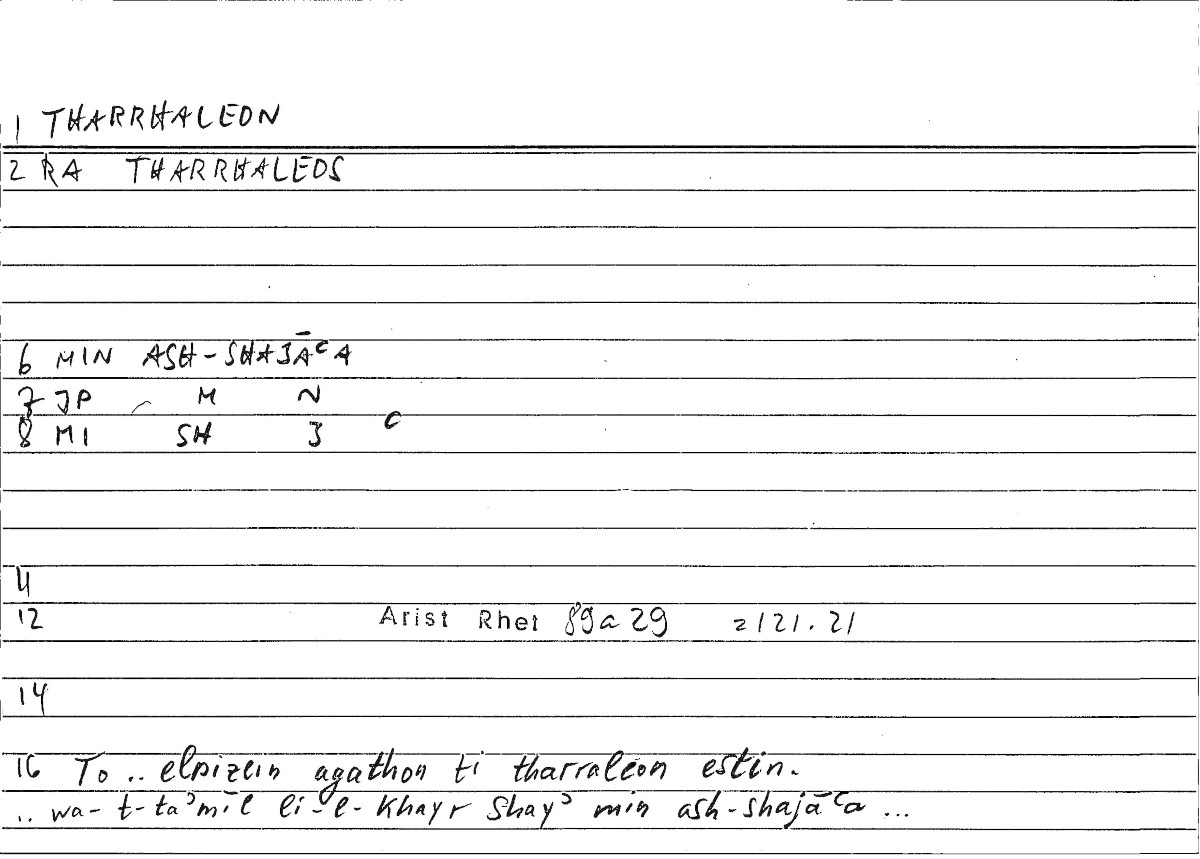 1 THARRHALEON
2 RA THARRHALEOS
6 MIN ASH-SHAJĀᶜA
7 JP M N
8 MI SH J ᶜ
4
12 Arist Rhet 89a29 =121.21
14
16 To .. elpizein agathon ti tharraleon estin.
.. wa-t-taʾmīl li-l-khayr shayʾ min ash-shajāᶜa ...